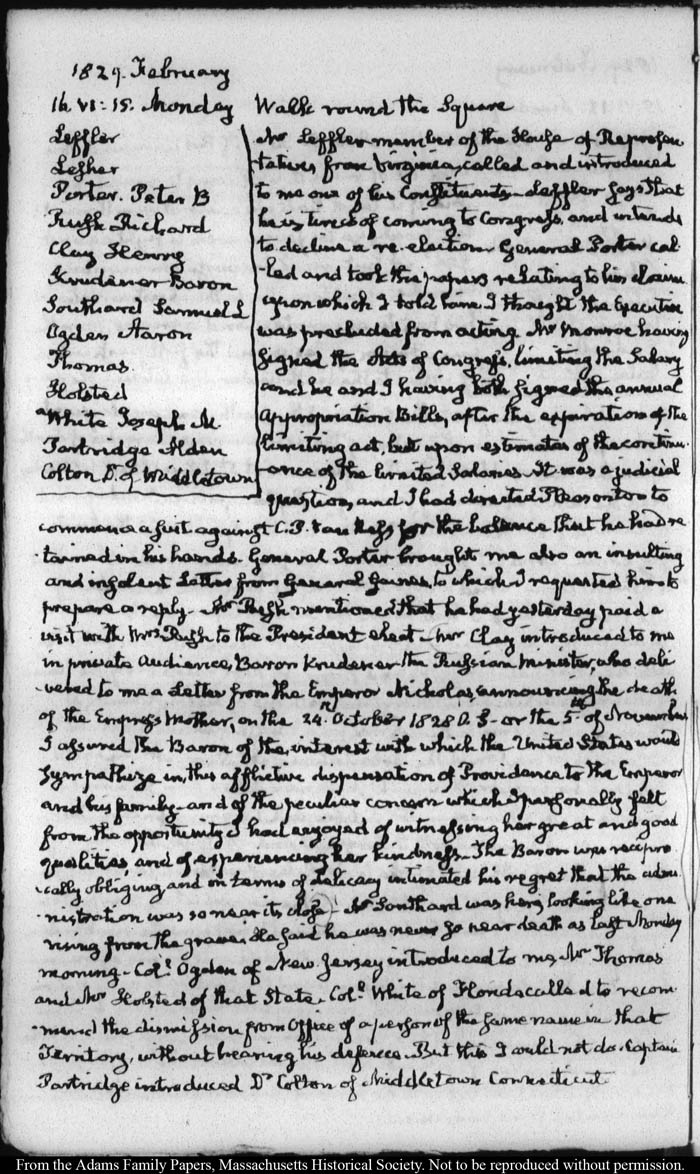 1829. February
16. VI:15. Monday
Leffler
Lesher
Porter. Peter B
Rush Richard
Clay Henry
Krudener Baron
Southard Samuel L
Ogden Aaron
Thomas
Holsted
White Joseph M
Partridge Alden
Colton Dr. of Middletown
Walk round the Square
Mr Leffler member of the House of Represen-
tatives from Virginia, called and introduced
to me one of his Constituents. Leffler says that
he is tired of coming to Congress, and intends
to decline a re-election. General Porter cal-
-led and took the papers relating to his claim
upon which I told him I thought the Executive
was precluded from acting Mr Monroe having
signed the Acts of Congress, limiting the Salary
and he and I having both signed the annual
Appropriation Bills, after the expiration of the
limiting act, but upon estimates of the continu-
-ance of the limited Salaries. It was a judicial
question, and I had directed Pleasonton to
commence a suit against C. P. Van Ness for the balance that he had re
-tained in his hands. General Porter brought me also an insulting
and insolent Letter from General Gaines, to which I requested him to
prepare a reply. Mr Rush mentioned that he had yesterday paid a
visit with Mrs Rush to the President elect. Mr Clay introduced to me
in private Audience, Baron Krudener the Russian Minister, who deli
-vered to me a Letter from the Emperor Nicholas, announcing the death
of the Empress Mother, on the 24th October 1828 O.S. or the 5th of November
I assured the Baron of the interest with which the United States would
sympathize in this afflictive dispensation of Providence to the Emperor
and his family—and of the peculiar concern which I personally felt
from the opportunity I had enjoyed of witnessing her great and good
qualities, and of experiencing her kindness. The Baron was recipro
-cally obliging and in terms of delicacy intimated his regret that the admi
-nistration was so near its close. Mr Southard was here, looking like one
rising from the grave. He said he was never so near death as last Monday
morning. Coll. Ogden of New Jersey introduced to me, Mr Thomas
and Mr Holsted of that State. Coll. White of Florida called to recom
-mend the dismission from Office of a person of the same name in that
Territory, without hearing his defence. But this I could not do. Captain
Partridge introduced Dr Colton of Middletown Connecticut
From the Adams Family Papers, Massachusetts Historical Society. Not to be reproduced without permission